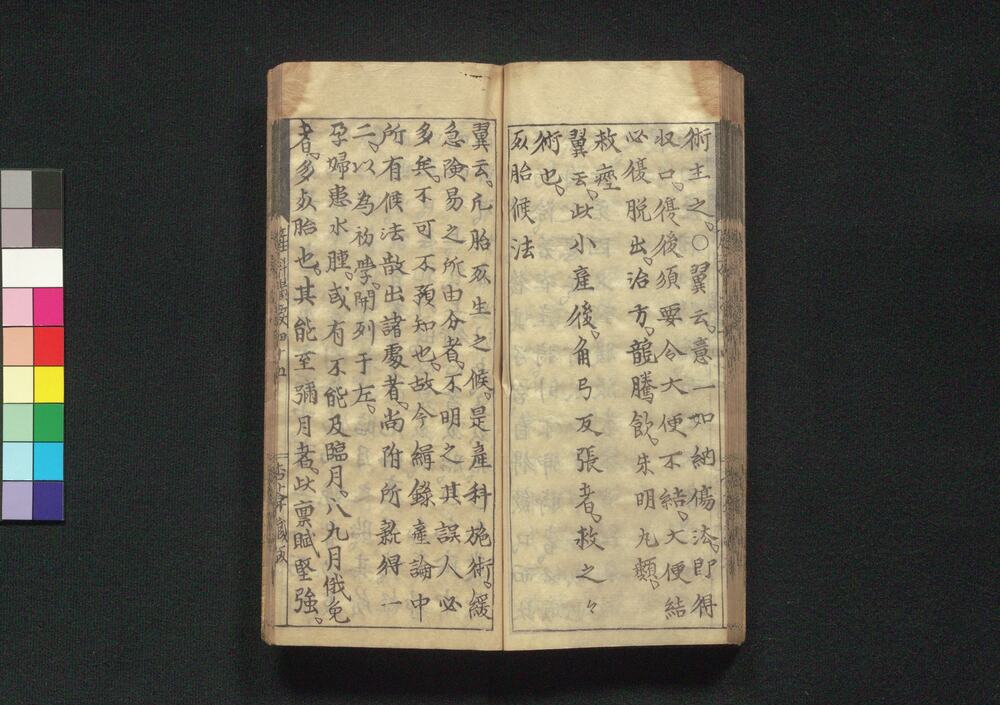 術主之。〇翼云。意一如納傷法。即得
収口。復後須要令大便不結。大便結
必復脱出。治方。龍騰飲。朱明丸類。
救痙
翼云。此小產後。角弓反張者。救之々
術也。
死胎候法
翼云。凡胎死生之候。是產科施術。緩
急險易之所由分者。不明之其誤人必
多矣。不可不預知也。故今緝錄產論中
所有候法散出諸處者。尚附所新得一
二。以為初學。開列于左。
孕婦患水腫。或有不能及臨月。八九月俄免
者。多死胎也。其能至彌月者。此稟賦堅強。